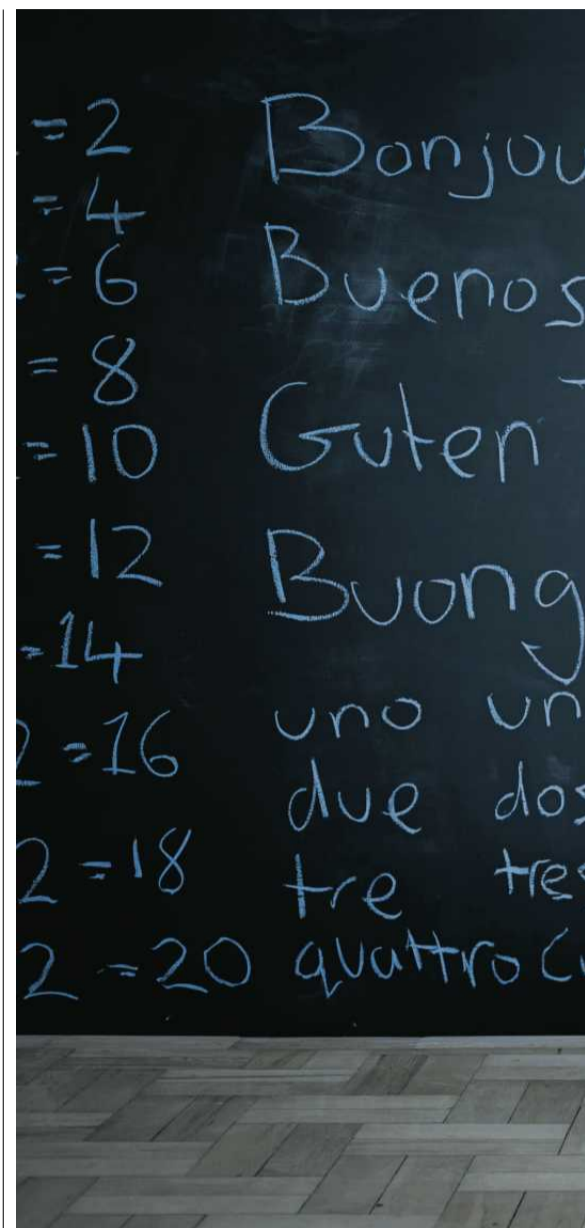 = 2
= 4
= 6
= 8
= 10
= 12
= 14
2 = 16
2 = 18
2 = 20
Bonjou
Buenos
Guten
Buong
uno un
due dos
tre tres
quattro